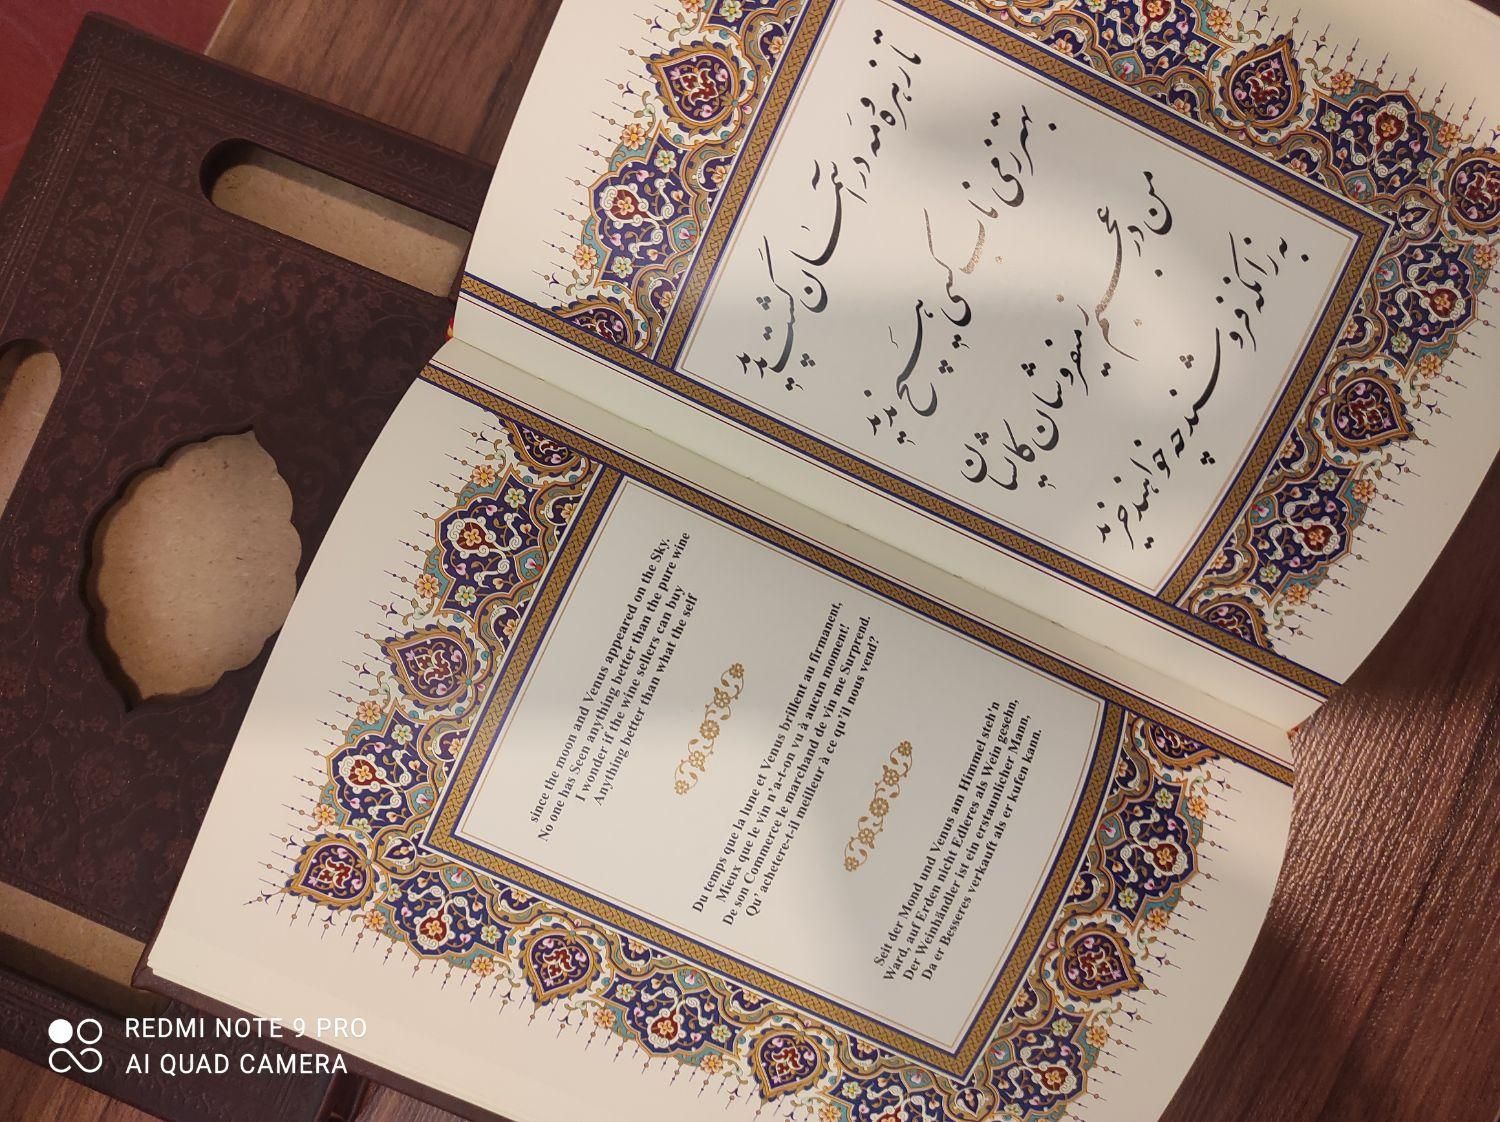 تا زهره و مه در آسمان گشت پدید
بهتر ز می ناب کسی هیچ ندید
من در عجبم ز میفروشان کایشان
به زانکه فروشند چه خواهند خرید
since the moon and Venus appeared on the Sky.
No one has Seen anything better than the pure wine
I wonder if the wine sellers can buy
Anything better than what the self
Du temps que la lune et Venus brillent au firmanent,
Mieux que le vin n'a-t-on vu à aucun moment!
De son Commerce le marchand de vin me Surprend.
Qu' achetere-t-il meilleur à ce qu'il nous vend?
Seit der Mond und Venus am Himmel steh'n
Ward, auf Erden nicht Edleres als Wein gesehn,
Der Weinhändler ist ein erstaunlicher Mann,
Da er Besseres verkauft als er kufen kann.
REDMI NOTE 9 PRO
AI QUAD CAMERA